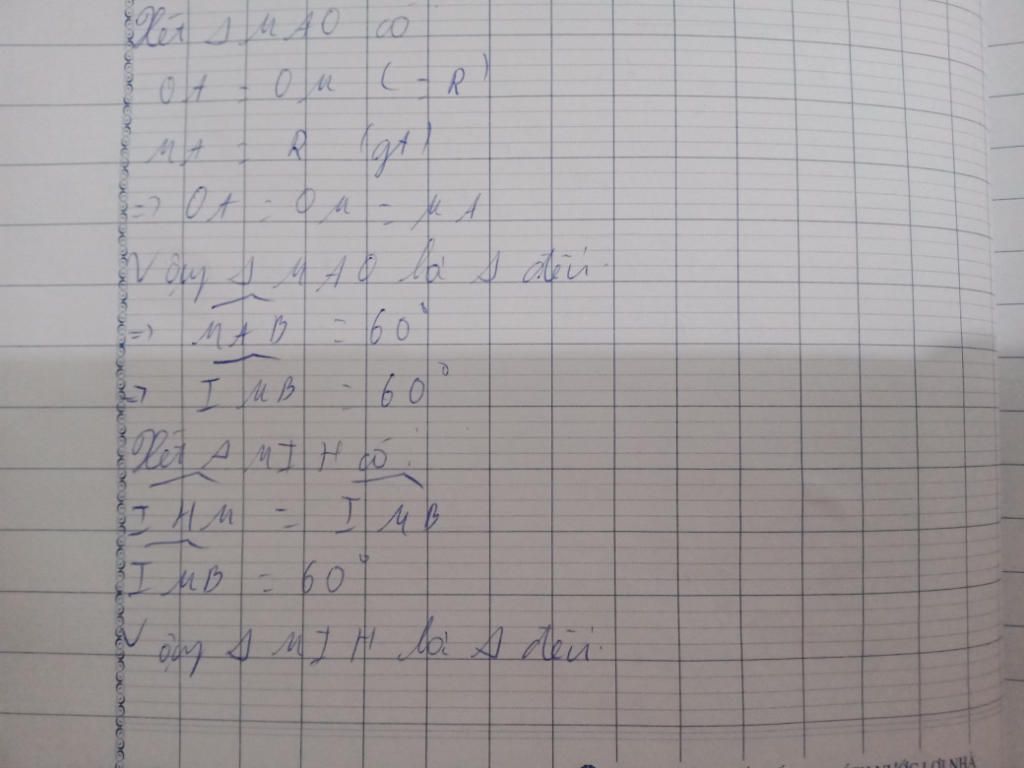 Xét Δ MAO có
OA = OM ( = R )
MA = R (gt)
=> OA = OM = MA
Vậy Δ MAO là Δ đều.
=> MAB = 60°
=> IMB = 60°
Xét Δ MIH có:
IHM = IMB
IMB = 60°
Vậy Δ MIH là Δ đều.